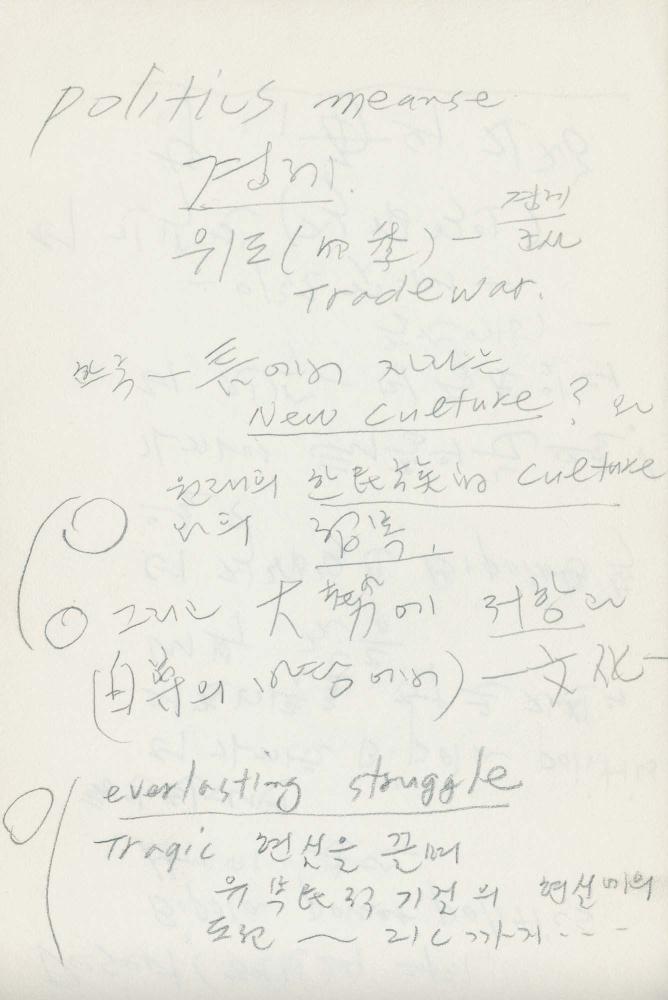 politics meanse
경제.
위도( 季) — 경제
Trade war.
한국 — 틈에서 자라는
New Culture? 와
원래의 한民族的 Culture
와의 접목.
그리고 大勢에 저항과
(自尊의 바탕에서) — 文化 —
everlasting struggle
Tragic 현실을 끌며
유목民的 기질의 현실에의
도전 ~ 21C 까지 ---